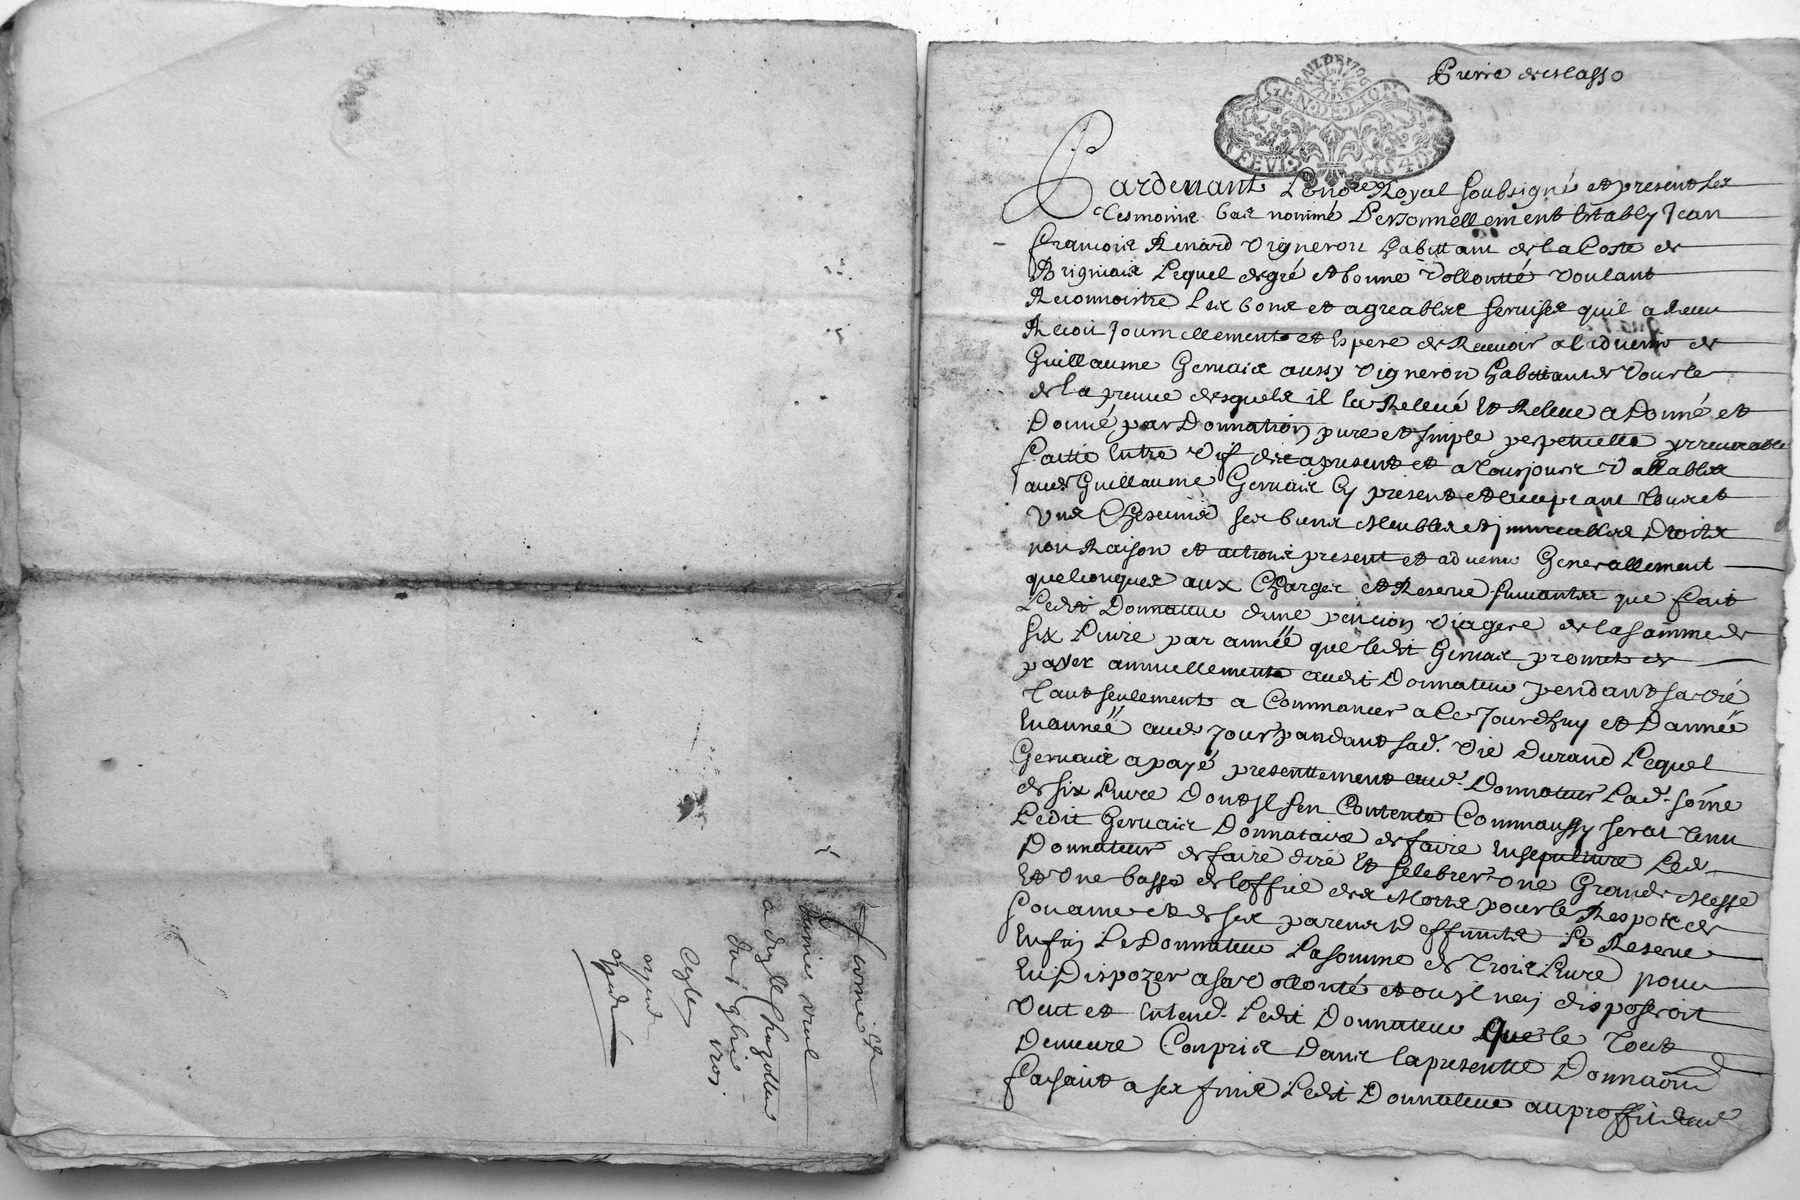 Pierre
BAIL DE 1706
GEN DE LION
Pardevant Le no.re Royal soubsigné et present les
tesmoins bas nommé Personnellement Estably Jean
françois Renard vigneron habittant de la Coste de
Brignais Lequel de gré et bonne vollontté voulant
Reconnoistre les bons et agreables services quil a Receu
Recoit Journellement et Espere de Recevoir a ladvenir de
Guillaume Gervais aussy vigneron habittant de Vourle
de la preuve desquels il la Relevé et Releve a Donné et
Donne par Donnation pure et simple perpetuelle yrrevocable
faitte Entre vif des apresent et a tousjours vallables
aud. Guillaume Gervais Cy present et acceptant tous et
Uns Chescuns ses biens Meubles et immeubles Droits
nom Raison et actions present et advenir Generallement
quelconques aux Charges et Reserve suivantes que fait
Ledit Donnateur dune pencion viagere de la somme de
six Livre par année que ledit Gervais promet de
payer annuellement audit Donnateur pendant sa vie
tant seulement a Commancer a Ce Jourdhuy et Dannée
En année aud. Jour pandant sad. vie Durand Lequel
Gervais a payé presenttement aud. Donnateur Lad. somme
de six Livre Dont Il sen Contente Comm aussy serat tenu
Ledit Gervais Donnataire de faire Ensepulture Led.
Donnateur de faire dire Et selebrer one Grande Messe
Et Une basse de loffice des Morts pour le Repos de
son ame et de ses parents deffunts Se Reserve
Enfin Le Donnateur La somme de trois Livre pour
En Dispozer a sa vollonté et ou Il nen disposeroit
veut et Entend. Ledit Donnateur que le tout
Demeure Conpris Dans la presente Donnaon
faisant a ses fins Ledit Donnateur au proffit dud.